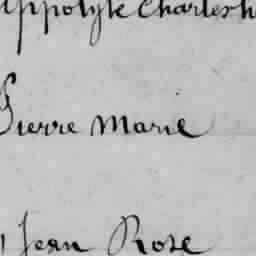 Hippolyte Charlesh
Pierre Marie
Jean Rose